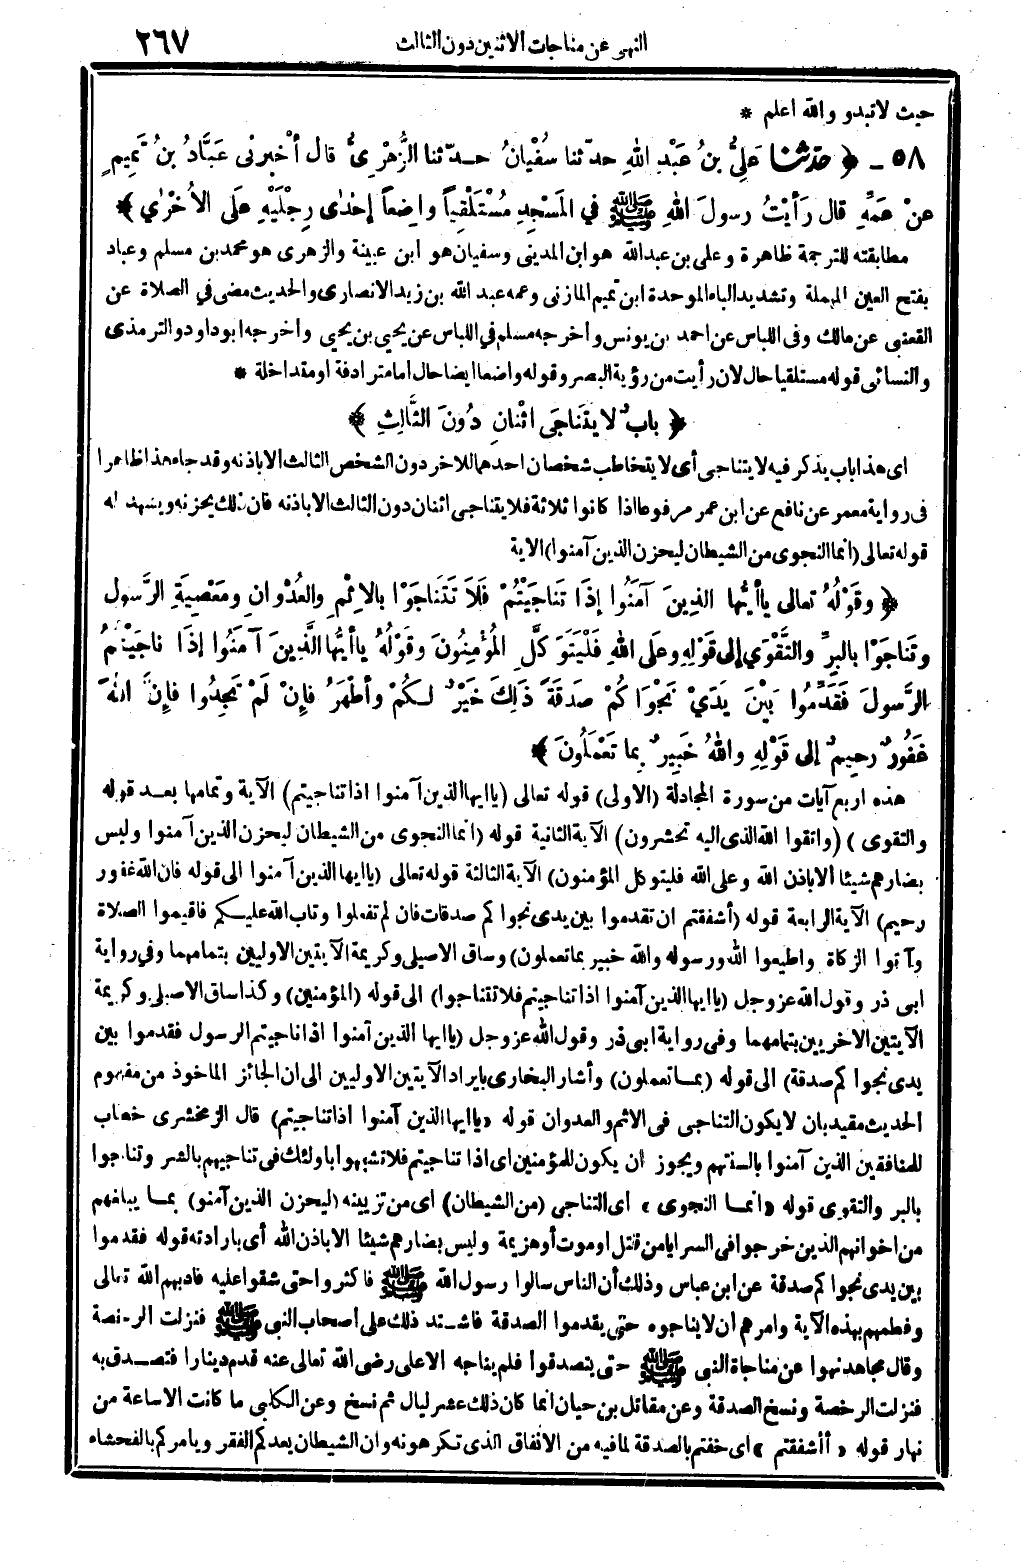 النهى عن مناجات الاثنين دون الثالث ٢٦٧
حيث لا تبدو والله أعلم *
٥٨ ـ ﴿ حدثنا عَلِيُّ بنُ عَبْدِ اللهِ حدّثنا سُفْيانُ حدّثنا الزُّهْرِىُّ قال أخْبرنى عَبَّادُ بنُ تَمِيمٍ
عنْ عَمِّهِ قال رَأيْتُ رسولَ اللهِ ﷺ في المَسْجِدِ مُسْتَلْقِياً واضِعاً إحْدَى رِجْلَيْهِ علَى الأُخْرَى ﴾
مطابقته للترجمة ظاهرة وعلى بن عبدالله هو ابن المدينى وسفيان هو ابن عيينة والزهرى هو محمد بن مسلم وعباد
بفتح العين المهملة وتشديد الباء الموحدة ابن تميم المازنى وعمه عبد الله بن زيد الانصارى والحديث مضى في الصلاة عن
القعنبى عن مالك وفى اللباس عن احمد بن يونس وأخرجه مسلم في اللباس عن يحيى بن يحيى وأخرجه ابو داود والترمذى
والنسائى قوله مستلقيا حال لان رأيت من رؤية البصر وقوله واضعا ايضا حال امامترادفة او متداخلة *
﴿ بابٌ لا يتَناجَى اثْنانِ دُونَ الثَّالِثِ ﴾
اى هذا باب يذكر فيه لا يتناجى أى لا يتخاطب شخصان احدهما للاخر دون الشخص الثالث الا باذنه وقد جاء هذا ظاهرا
فى رواية معمر عن نافع عن ابن عمر مرفوعا اذا كانوا ثلاثة فلا يتناجى اثنان دون الثالث الا باذنه فان ذلك يحزنه ويشهد له
قوله تعالى (انما النجوى من الشيطان ليحزن الذين آمنوا) الاية
﴿ وقَوْلُهُ تعالى ياأيُّها الذِينَ آمَنُوا إذَا تَناجَيْتُمْ فَلَا تَتَناجَوْا بالاثْمِ والعُدْوانِ ومَعْصِيَةِ الرَّسُولِ
وتَناجَوْا بالبِرِّ والتَّقْوَى إلى قَوْلِهِ وعلَى اللهِ فَلْيَتَوَكَّلِ المُؤْمِنُونَ وقَوْلُهُ ياأيُّها الَّذِينَ آمَنُوا إذَا ناجَيْتُمُ
الرَّسُولَ فَقَدِّمُوا بَيْنَ يَدَيْ نَجْوَاكُمْ صدَقَةً ذَلِكَ خَيْرٌ لَكُمْ وأطْهَرُ فإنْ لَمْ تَجِدُوا فإنَّ اللهَ
غَفُورٌ رحِيمٌ إلى قَوْلِهِ واللهُ خَبِيرٌ بِما تَعْمَلُونَ ﴾
هذه اربع آيات من سورة المجادلة (الاولى) قوله تعالى (يا ايها الذين آمنوا اذا تناجيتم) الآية وتمامها بعد قوله
والتقوى) (واتقوا الله الذى اليه تحشرون) الآية الثانية قوله (انما النجوى من الشيطان ليحزن الذين آمنوا وليس
بضارهم شيئا الا باذن الله وعلى الله فليتوكل المؤمنون) الآية الثالثة قوله تعالى (يا ايها الذين آمنوا الى قوله فان الله غفور
رحيم) الآية الرابعة قوله (أشفقتم ان تقدموا بين يدى نجواكم صدقات فان لم تفعلوا وتاب الله عليكم فاقيموا الصلاة
وآتوا الزكاة واطيعوا الله ورسوله والله خبير بما تعملون) وساق الاصيلى وكريمة الآيتين الاوليين بتمامهما وفي رواية
ابى ذر وقول الله عز وجل (يا ايها الذين آمنوا اذا تناجيتم فلا تتناجوا) الى قوله (المؤمنين) وكذا ساق الاصيلى وكريمة
الآيتين الاخريين بتمامهما وفى رواية ابى ذر وقول الله عز وجل (يا ايها الذين آمنوا اذا ناجيتم الرسول فقدموا بين
يدى نجواكم صدقة) الى قوله (بما تعملون) وأشار البخارى بايراد الآيتين الاوليين الى ان الجائز الماخوذ من مفهوم
الحديث مقيد بان لا يكون التناجى فى الاثم والعدوان قوله «يا ايها الذين آمنوا اذا تناجيتم) قال الزمخشرى خطاب
للمنافقين الذين آمنوا بالسنتهم ويجوز ان يكون للمؤمنين اى اذا تناجيتم فلا تشبهوا باولئك فى تناجيهم بالشر وتناجوا
بالبر والتقوى قوله «انما النجوى» اى التناجى (من الشيطان) اى من تزيينه (ليحزن الذين آمنو) بما يبلغهم
من اخوانهم الذين خرجوا في السرايا من قتل او موت أو هزيمة وليس بضارهم شيئا الا باذن الله أى بارادته قوله فقدموا
بين يدى نجواكم صدقة عن ابن عباس وذلك أن الناس سالوا رسول الله ﷺ فاكثروا حتى شقوا عليه فادبهم الله تعالى
وفطمهم بهذه الآية وامرهم ان لا يناجوه حتى يقدموا الصدقة فاشتد ذلك على أصحاب النبى ﷺ فنزلت الرخصة
وقال مجاهد نهوا عن مناجاة النبى ﷺ حتى يتصدقوا فلم يناجه الا على رضى الله تعالى عنه قدم دينارا فتصدق به
فنزلت الرخصة ونسخ الصدقة وعن مقاتل بن حيان انما كان ذلك عشر ليال ثم نسخ وعن الكلبى ما كانت الا ساعة من
نهار قوله «أأشفقتم» اى خفتم بالصدقة لما فيه من الانفاق الذى تكرهونه وان الشيطان يعدكم الفقر ويامركم بالفحشاء